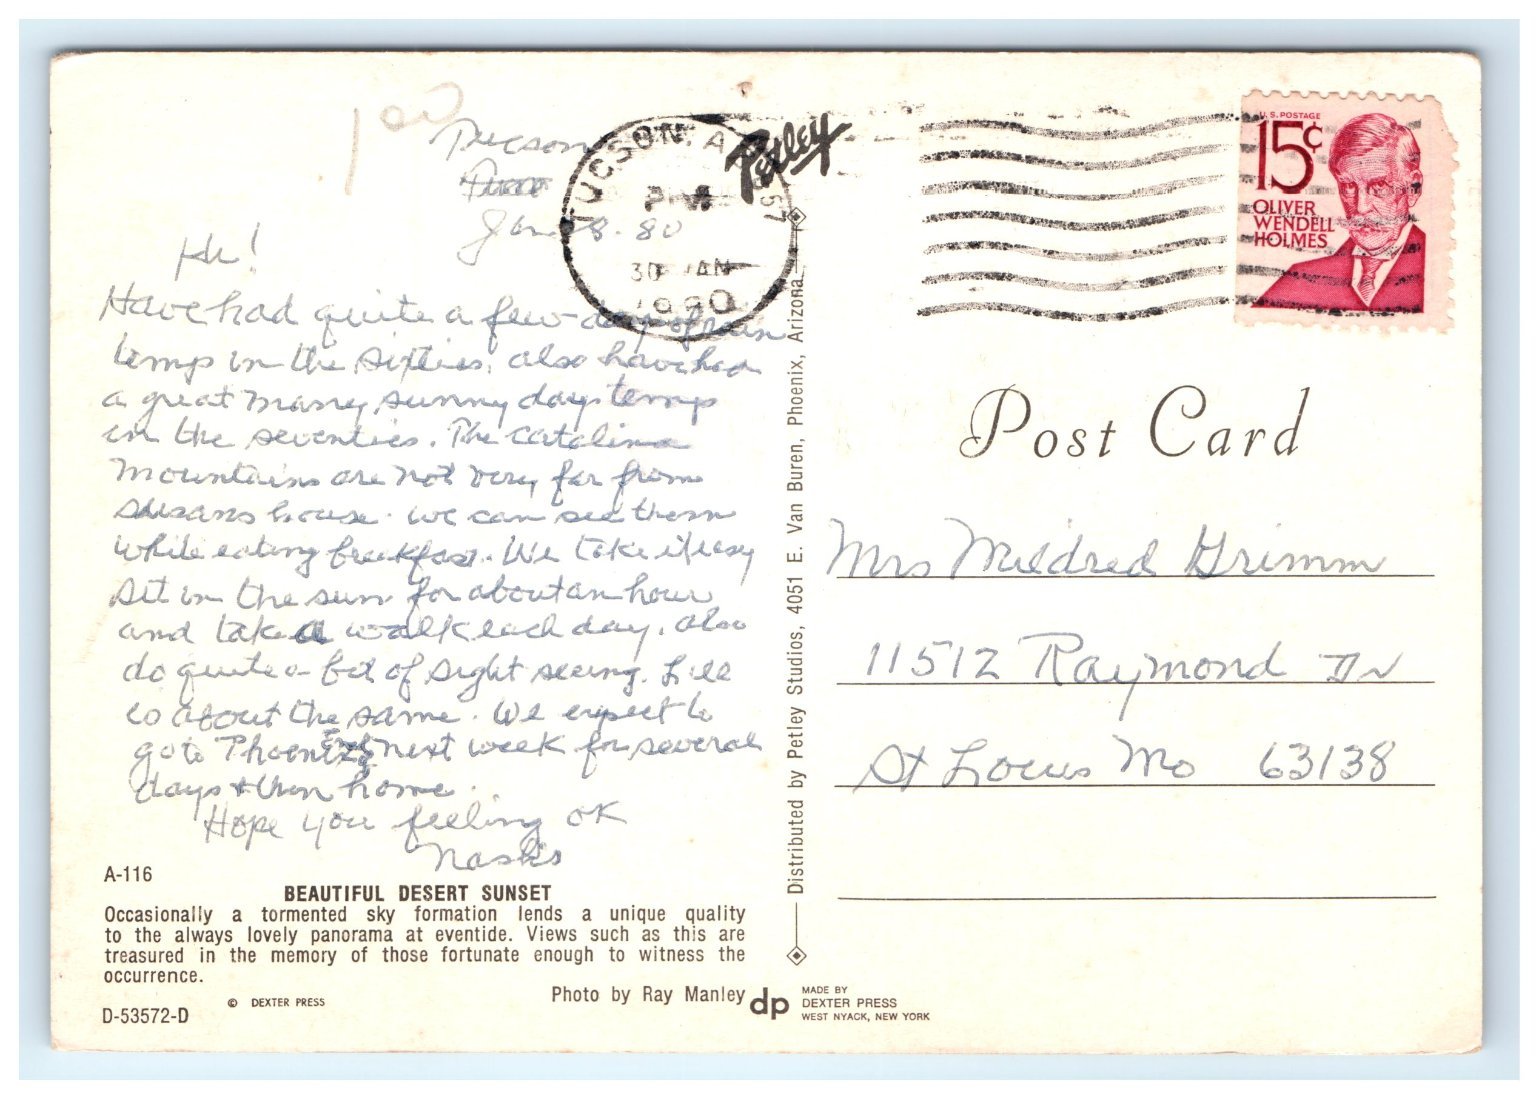 100
Tucson
Jan 28. 80
Hi!
Have had quite a few days of rain
temp in the sixties, also have had
a great many sunny days temp
in the seventies. The Catalina
Mountains are not very far from
Susans house. we can see them
while eating breakfast. We take it easy
sit in the sun for about an hour
and take a walk each day, also
do quite a bit of sight seeing.
is about the same. We expect to
go to Phoenix next week for several
days & then home.
Hope you feeling OK
Nashs
A-116
BEAUTIFUL DESERT SUNSET
Occasionally a tormented sky formation lends a unique quality
to the always lovely panorama at eventide. Views such as this are
treasured in the memory of those fortunate enough to witness the
occurrence.
© DEXTER PRESS
Photo by Ray Manley
D-53572-D
dp
MADE BY
DEXTER PRESS
WEST NYACK, NEW YORK
Petley
Distributed by Petley Studios, 4051 E. Van Buren, Phoenix, Arizona
TUCSON, A 857
PM
30 JAN
1980
U.S. POSTAGE
15¢
OLIVER
WENDELL
HOLMES
Post Card
Mrs Mildred Grimm
11512 Raymond Dr
St Louis Mo 63138